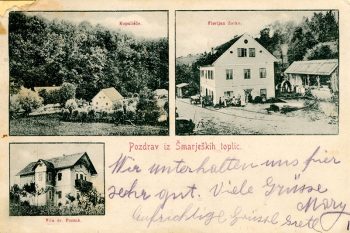 Kopališče.
Florijan Zorko.
Pozdrav iz Šmarjeških toplic.
Wir unterhalten uns hier
sehr gut. Viele Grüsse
Mary
Aufrichtige Grüsse Grete
Vila dr.